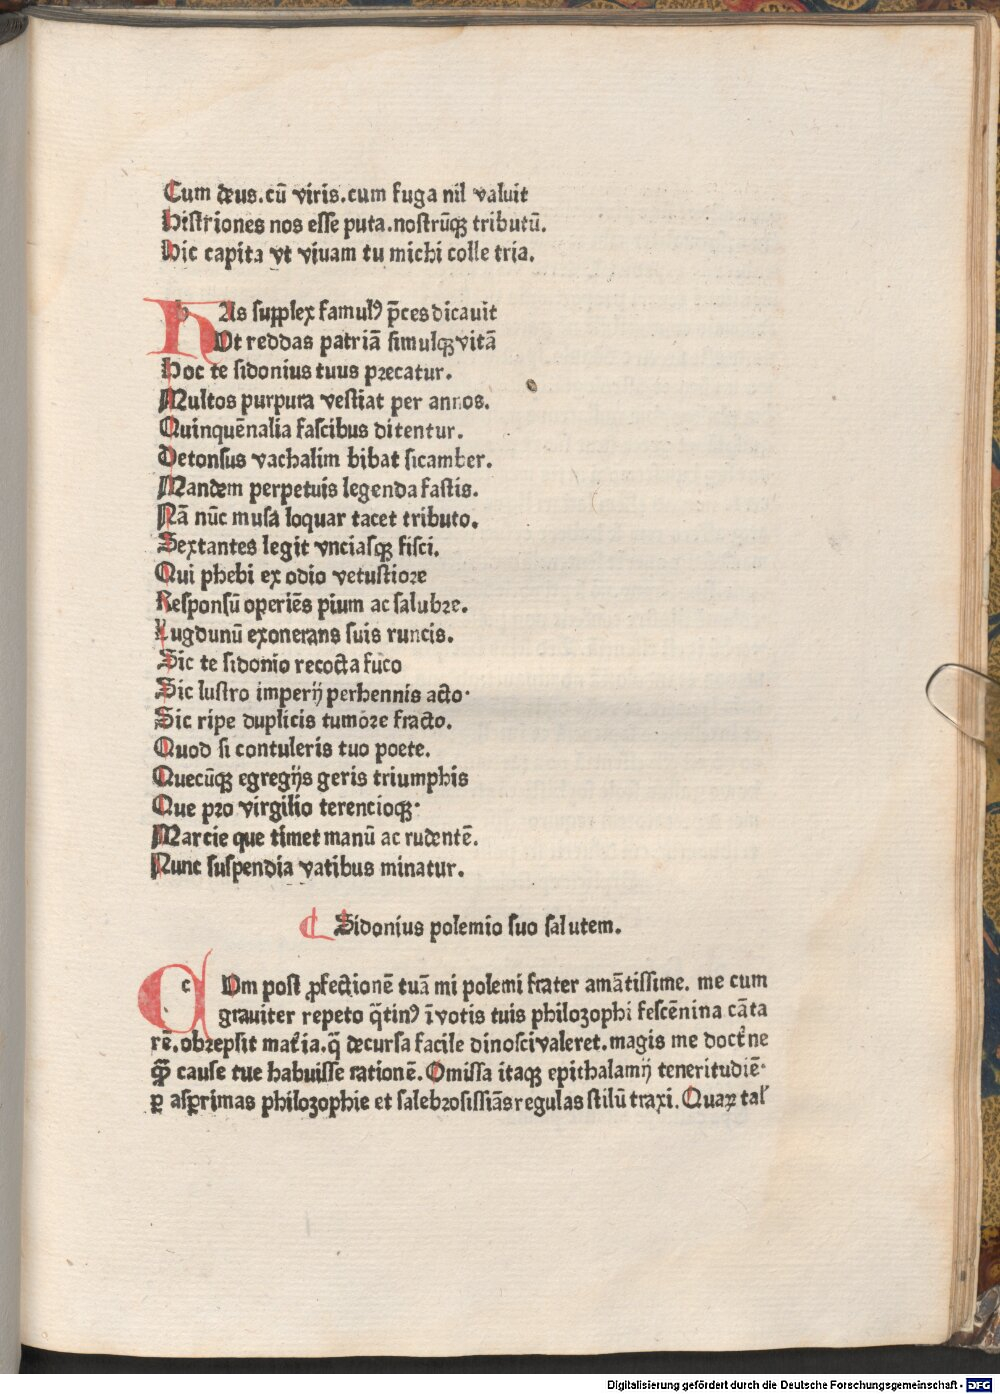 Cum deus.cū viris.cum fuga nil valuit
Histriones nos esse puta.nostrūqꝫ tributū.
Hic capita vt viuam tu michi colle tria.
H As supplex famulꝰ p̄ces dicauit
Vt reddas patriā simulqꝫ vitā
Hoc te sidonius tuus precatur.
Multos purpura vestiat per annos.
Quinquēnalia fascibus ditentur.
Detonsus vachalim bibat sicamber.
Mandem perpetuis legenda fastis.
Nā nūc musa loquar tacet tributo.
Sextantes legit vnciasqꝫ fisci.
Qui phebi ex odio vetustiore
Responsū operiēs pium ac salubre.
Lugdunū exonerans suis runcis.
Sic te sidonio recocta fuco
Sic lustro imperij perhennis acto·
Sic ripe duplicis tumore fracto.
Quod si contuleris tuo poete.
Quecūqꝫ egregijs geris triumphis
Que pro virgilio terencioqꝫ·
Marcie que timet manū ac rudentē.
Nunc suspendia vatibus minatur.
Sidonius polemio suo salutem.
C Vm post ꝓfectionē tuā mi polemi frater amātissime. me cum
grauiter repeto q̄tinꝰ ī votis tuis philozophi fescēnina cāta
rē.obrepsit mat̄ia.q̄ decursa facile dinosci valeret.magis me doct̄ne
ꝙ̄ cause tue habuisse rationē. Omissa itaqꝫ epithalamij teneritudiē·
ꝑ asꝑrimas philozophie et salebrosissiās regulas stilū traxi. Quaꝝ tal̄
Digitalisierung gefördert durch die Deutsche Forschungsgemeinschaft - DFG